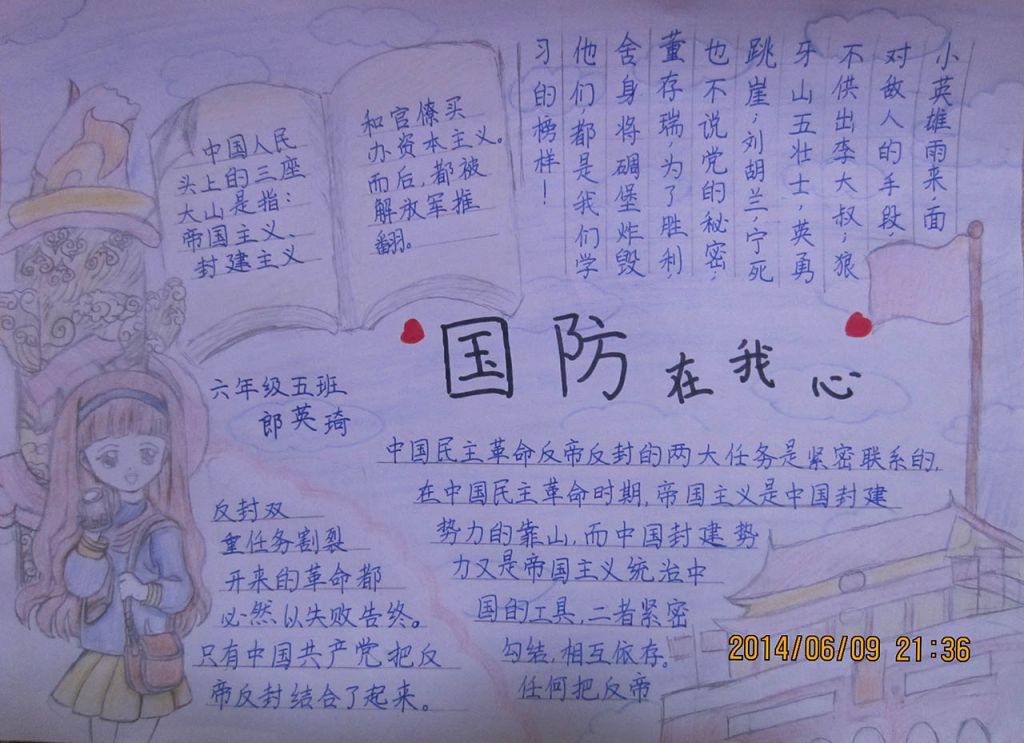 小英雄雨来，面
对敌人的手段，
不供出李大叔；狼
牙山五壮士，英勇
跳崖；刘胡兰，宁死
也不说党的秘密；
董存瑞，为了胜利
舍身将碉堡炸毁
他们都是我们学
习的榜样！
中国人民
头上的三座
大山是指：
帝国主义、
封建主义
和官僚买
办资本主义。
而后，都被
解放军推
翻。
国防在我心
六年级五班
郎英琦
中国民主革命反帝反封的两大任务是紧密联系的，
在中国民主革命时期，帝国主义是中国封建
势力的靠山，而中国封建势
力又是帝国主义统治中
国的工具，二者紧密
勾结，相互依存。
任何把反帝
反封双
重任务割裂
开来的革命都
必然以失败告终。
只有中国共产党把反
帝反封结合了起来。
2014/06/09 21:36